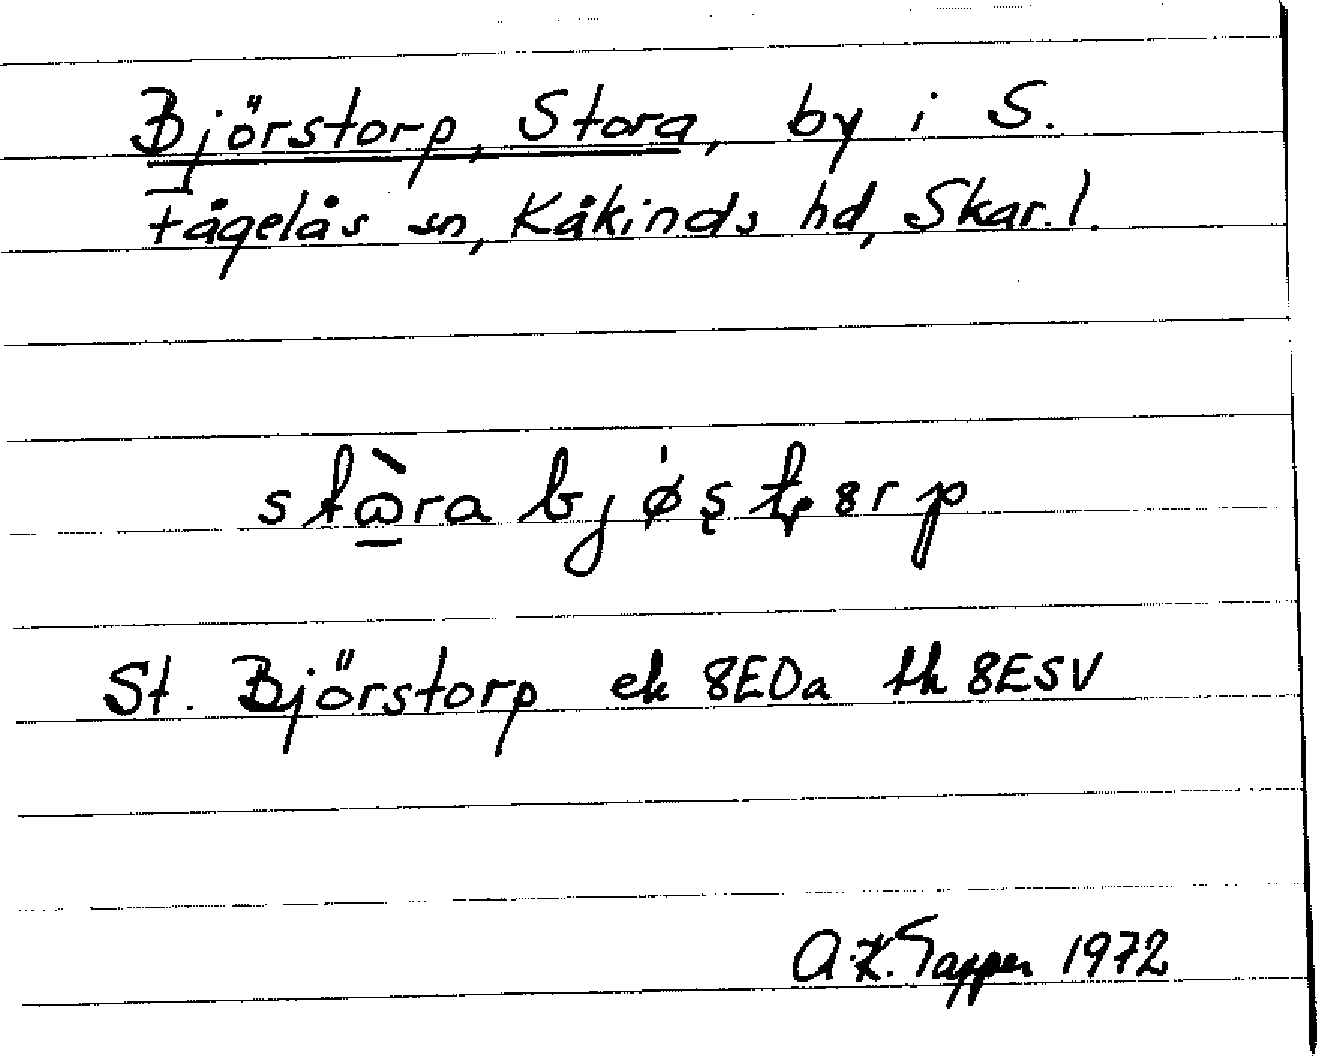 Björstorp, Stora, by i S.
Fågelås sn, Kåkinds hd, Skar. l.
St. Björstorp ek 8EDa th 8ESV
A.K. Tapper 1972